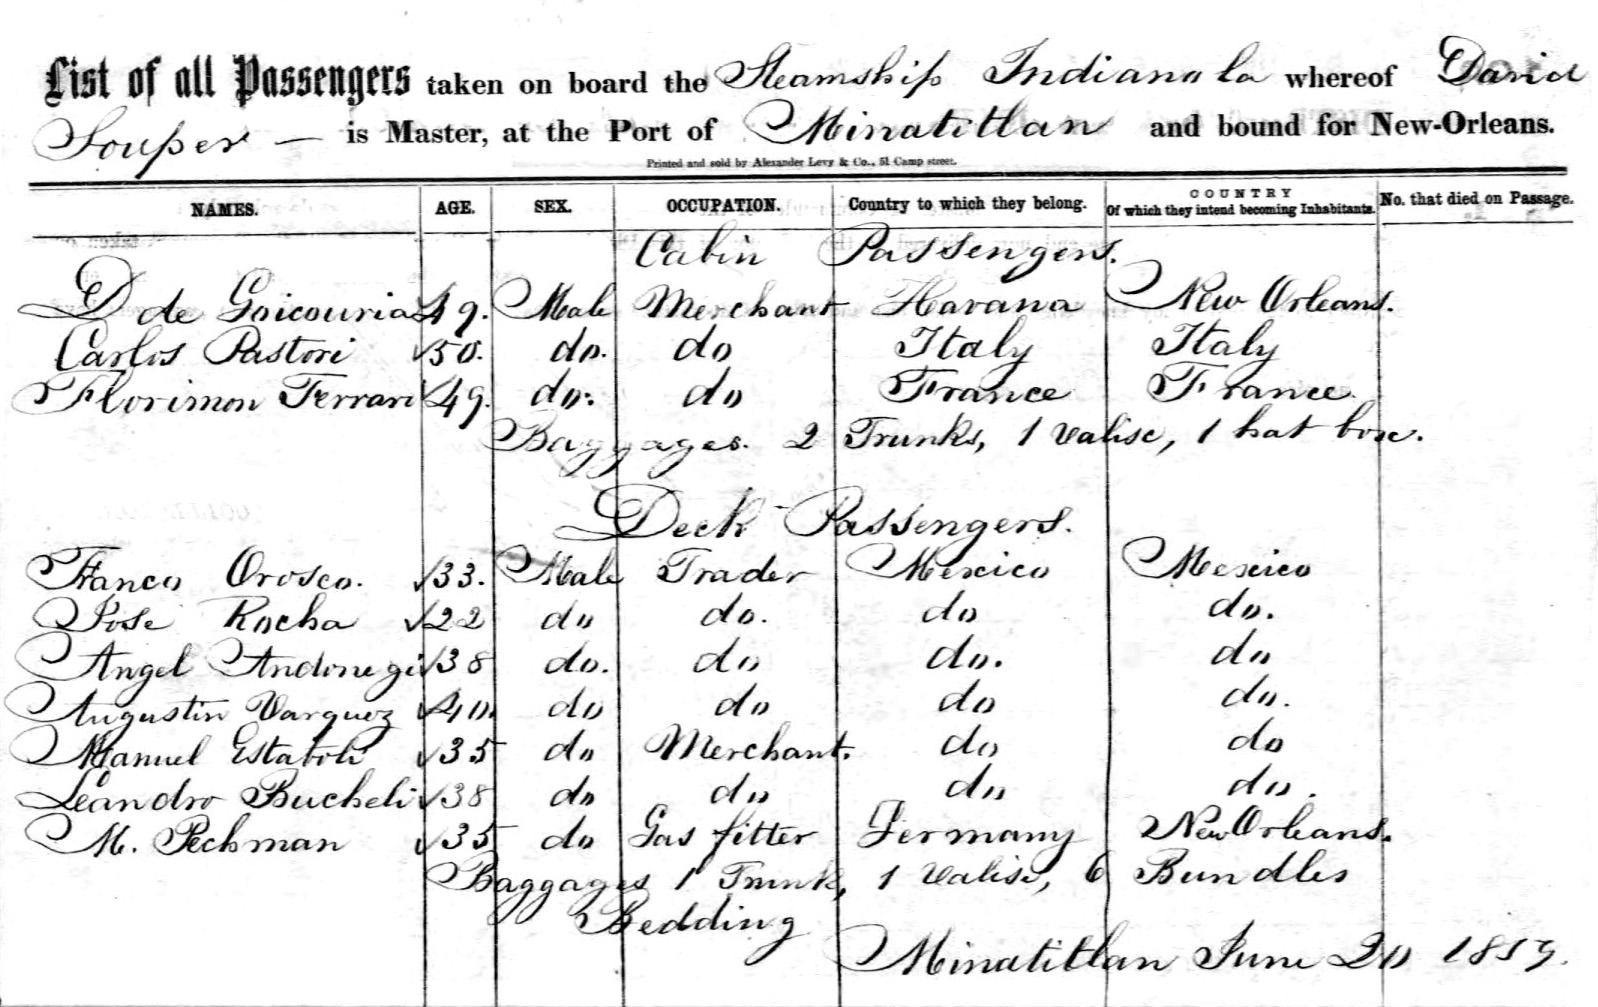 List of all Passengers taken on board the Steamship Indianola whereof David
Souper — is Master, at the Port of Minatitlan and bound for New-Orleans.
Printed and sold by Alexander Levy & Co., 51 Camp street.
NAMES. AGE. SEX. OCCUPATION. Country to which they belong. COUNTRY Of which they intend becoming Inhabitants. No. that died on Passage.
Cabin Passengers.
D de Goicouria 49. Male Merchant Havana New Orleans.
Carlos Pastori 50. do. do Italy Italy
Florimon Ferrari 49. do. do France France.
Baggages. 2 Trunks, 1 valise, 1 hat box.
Deck Passengers.
Franco Orosco. 33. Male Trader Mexico Mexico
Jose Rocha 22 do do. do do.
Angel Andonegi 38 do. do do. do
Augustin Varquez 40. do do do do.
Manuel Estaboli 35 do Merchant. do do
Leandro Bucheli 38 do do do do.
M. Pechman 35 do Gas fitter Germany New Orleans.
Baggages 1 Trunk, 1 valise, 6 Bundles
Bedding
Minatitlan June 20 1859.